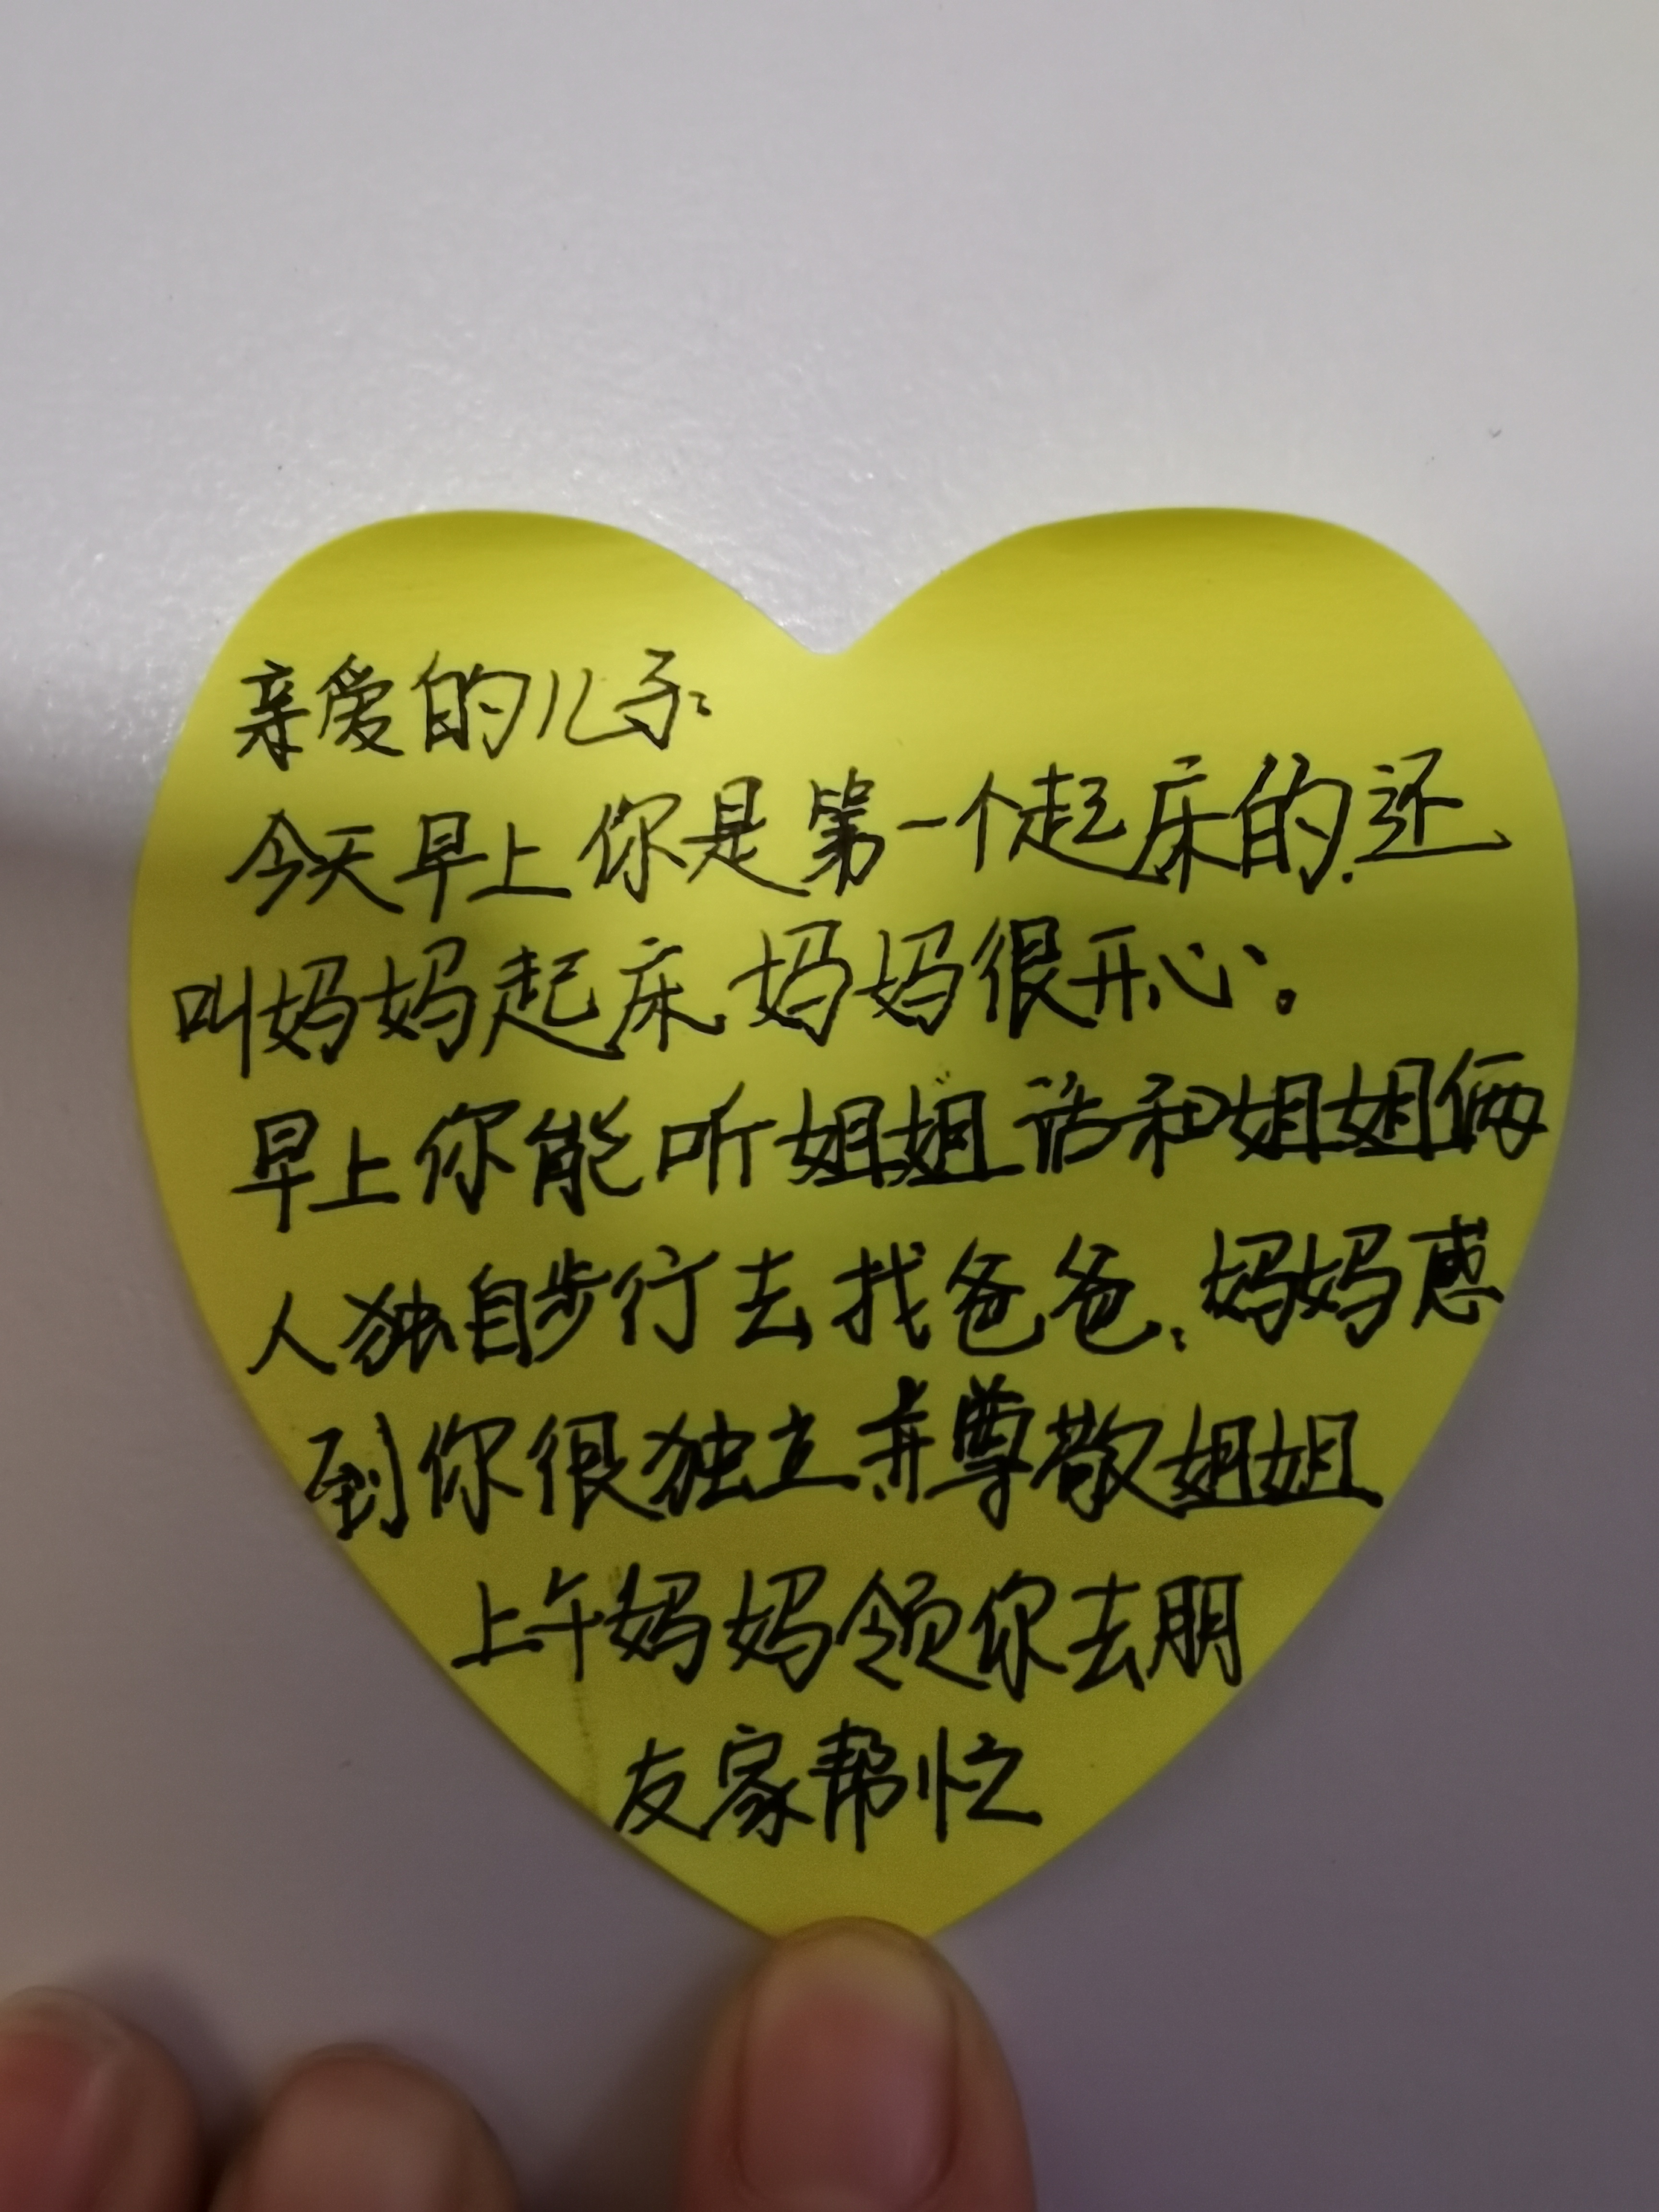 亲爱的儿子:
今天早上你是第一个起床的.还
叫妈妈起床.妈妈很开心。
早上你能听姐姐话和姐姐俩
人独自步行去找爸爸、妈妈感
到你很独立并尊敬姐姐
上午妈妈领你去朋
友家帮忙